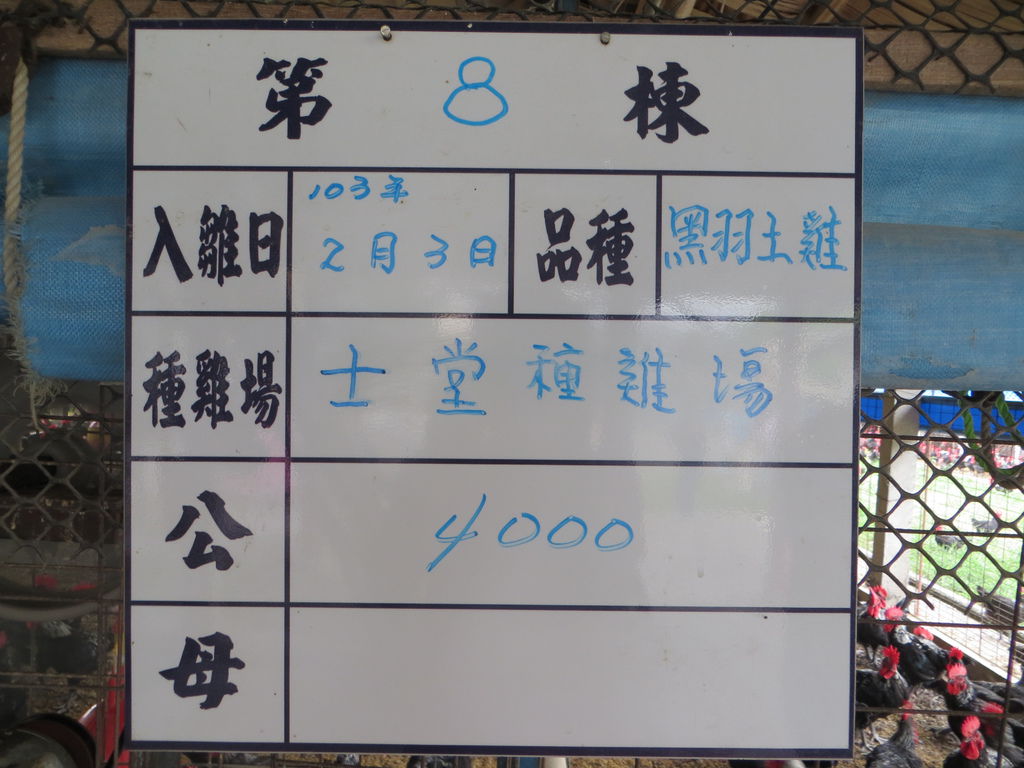 第 8 栋
入雛日 103年 2月3日 品種 黑羽土雞
種雞場 士堂種雞場
公 4000
母